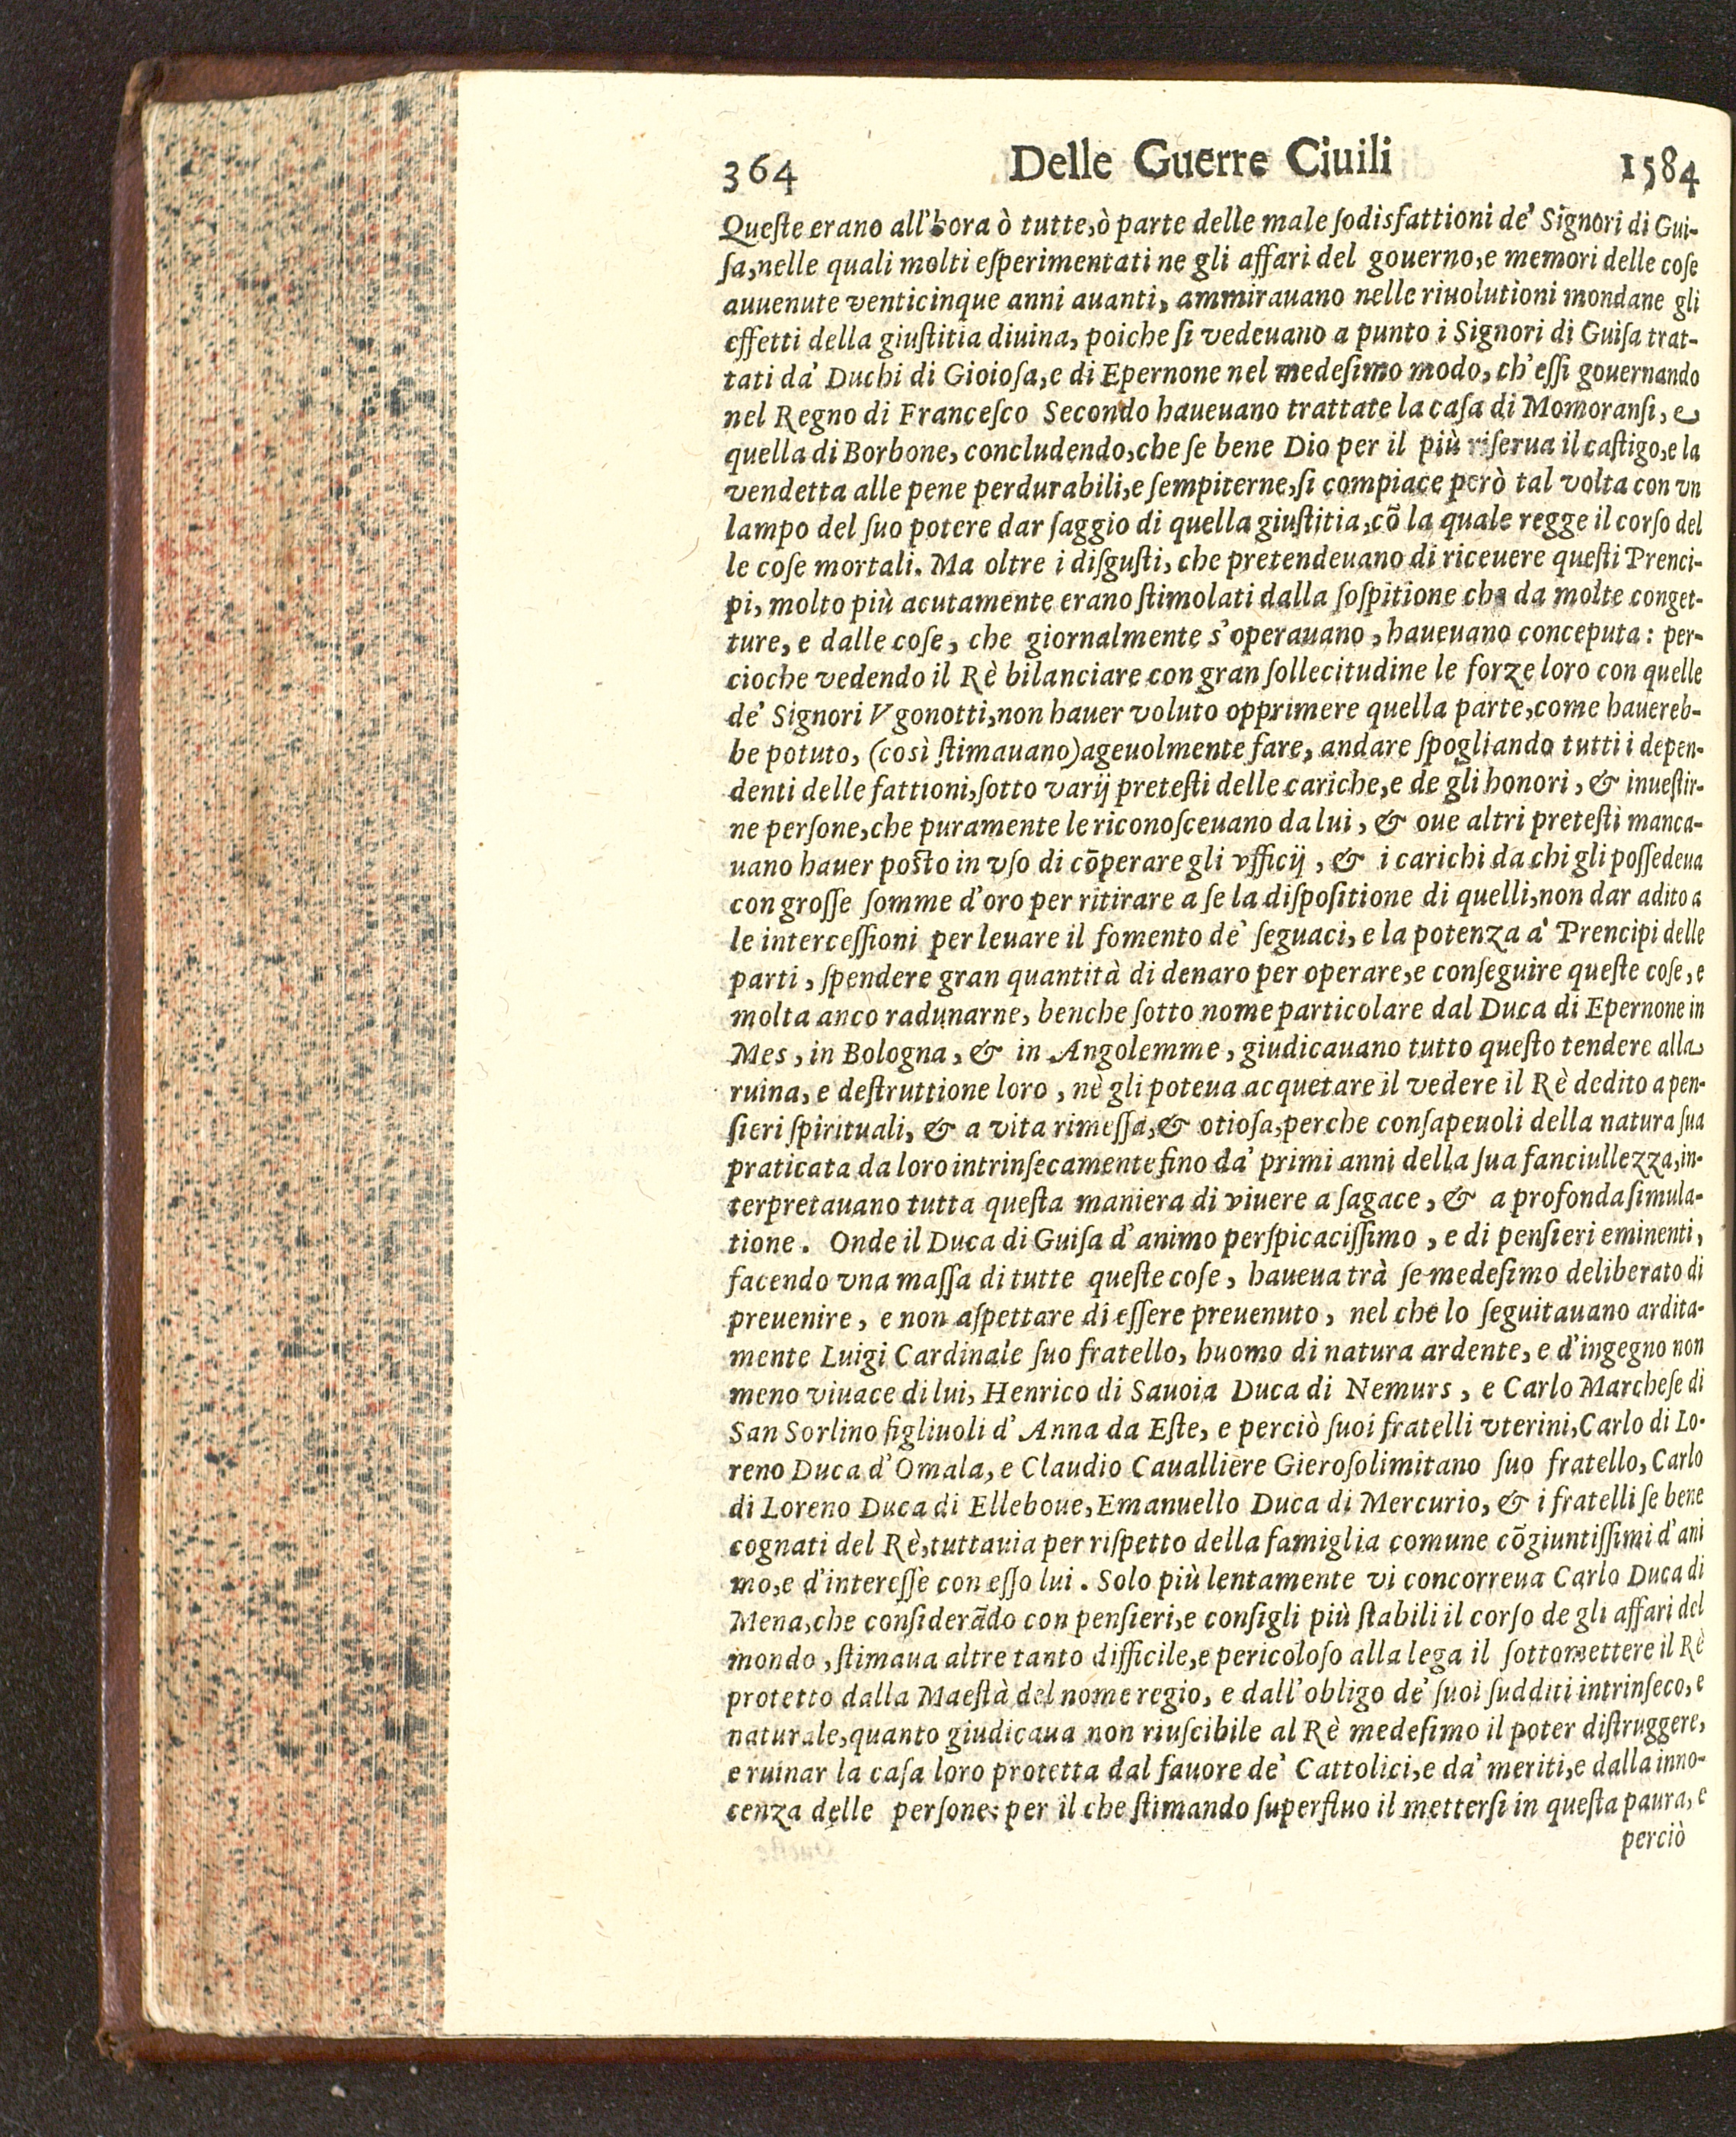 364 Delle Guerre Ciuili 1584
Queſte erano all'hora ò tutte, ò parte delle male ſodisfattioni de' Signori di Gui-
ſa, nelle quali molti eſperimentati ne gli affari del gouerno, e memori delle coſe
auuenute venticinque anni auanti, ammirauano nelle riuolutioni mondane gli
effetti della giuſtitia diuina, poiche ſi vedeuano a punto i Signori di Guiſa trat-
tati da' Duchi di Gioioſa, e di Epernone nel medeſimo modo, ch'eſſi gouernando
nel Regno di Franceſco Secondo haueuano trattate la caſa di Momoranſi, e
quella di Borbone, concludendo, che ſe bene Dio per il più riſerua il caſtigo, e la
vendetta alle pene perdurabili, e ſempiterne, ſi compiace però tal volta con vn
lampo del ſuo potere dar ſaggio di quella giuſtitia, cõ la quale regge il corſo del
le coſe mortali. Ma oltre i diſguſti, che pretendeuano di riceuere queſti Prenci-
pi, molto più acutamente erano ſtimolati dalla ſoſpitione che da molte conget-
ture, e dalle coſe, che giornalmente s'operauano, haueuano conceputa: per-
cioche vedendo il Rè bilanciare con gran ſollecitudine le forze loro con quelle
de' Signori Vgonotti, non hauer voluto opprimere quella parte, come hauereb-
be potuto, (così ſtimauano) ageuolmente fare, andare ſpogliando tutti i depen-
denti delle fattioni, ſotto varij preteſti delle cariche, e de gli honori, & inueſtir-
ne perſone, che puramente le riconoſceuano da lui, & oue altri preteſti manca-
uano hauer poſto in vſo di cõperare gli vfficij, & i carichi da chi gli poſſedeua
con groſſe ſomme d'oro per ritirare a ſe la diſpoſitione di quelli, non dar adito a
le interceſſioni per leuare il fomento de' ſeguaci, e la potenza a' Prencipi delle
parti, ſpendere gran quantità di denaro per operare, e conſeguire queſte coſe, e
molta anco radunarne, benche ſotto nome particolare dal Duca di Epernone in
Mes, in Bologna, & in Angolemme, giudicauano tutto queſto tendere alla
ruina, e deſtruttione loro, nè gli poteua acquetare il vedere il Rè dedito a pen-
ſieri ſpirituali, & a vita rimeſſa, & otioſa, perche conſapeuoli della natura ſua
praticata da loro intrinſecamente fino da' primi anni della ſua fanciullezza, in-
terpretauano tutta queſta maniera di viuere a ſagace, & a profonda ſimula-
tione. Onde il Duca di Guiſa d'animo perſpicaciſſimo, e di penſieri eminenti,
facendo vna maſſa di tutte queſte coſe, haueua trà ſe medeſimo deliberato di
preuenire, e non aſpettare di eſſere preuenuto, nel che lo ſeguitauano ardita-
mente Luigi Cardinale ſuo fratello, huomo di natura ardente, e d'ingegno non
meno viuace di lui, Henrico di Sauoia Duca di Nemurs, e Carlo Marcheſe di
San Sorlino figliuoli d'Anna da Eſte, e perciò ſuoi fratelli vterini, Carlo di Lo-
reno Duca d'Omala, e Claudio Cauallière Gieroſolimitano ſuo fratello, Carlo
di Loreno Duca di Elleboue, Emanuello Duca di Mercurio, & i fratelli ſe bene
cognati del Rè, tuttauia per riſpetto della famiglia comune cõgiuntiſſimi d'ani
mo, e d'intereſſe con eſſo lui. Solo più lentamente vi concorreua Carlo Duca di
Mena, che conſiderãdo con penſieri, e conſigli più ſtabili il corſo de gli affari del
mondo, ſtimaua altre tanto difficile, e pericoloſo alla lega il ſottomettere il Rè
protetto dalla Maeſtà del nome regio, e dall'obligo de' ſuoi ſudditi intrinſeco, e
naturale, quanto giudicaua non riuſcibile al Rè medeſimo il poter diſtruggere,
e ruinar la caſa loro protetta dal fauore de' Cattolici, e da' meriti, e dalla inno-
cenza delle perſone: per il che ſtimando ſuperfluo il metterſi in queſta paura, e
perciò